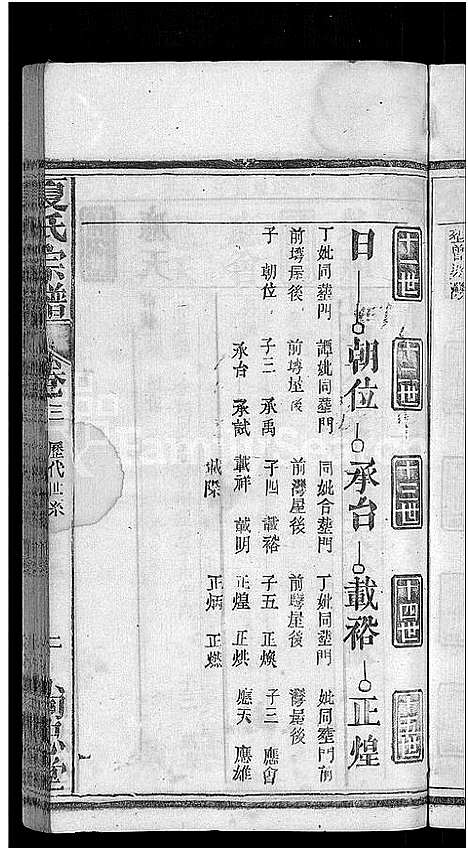 十一世 十二世 十三世 十四世 十五世
日 朝位 承台 載裕 正煌
丁妣同塟門 譚妣同塟門 同妣合塟門 丁妣同塟門 妣同塟門前
前塆屋後 前塆屋後 前灣屋後 前塆屋後 灣屋後
子 朝位 子三 承禹 子四 載裕 子五 正煥 子三 應會
承台 承試 載祥 載明 正煌 正烘 應天 應雄
正炳 正燃
夏氏宗譜 卷三 歷代世系 二